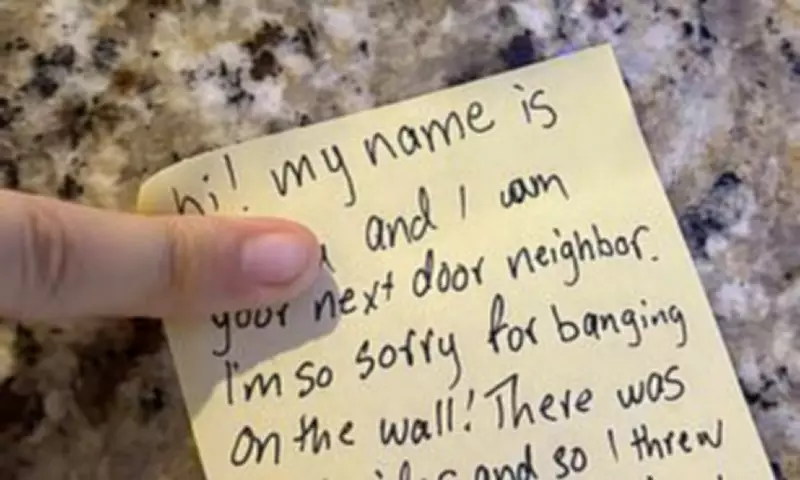 hi! my name is
and I am
your next door neighbor.
I'm so sorry for banging
on the wall! There was
and so I threw